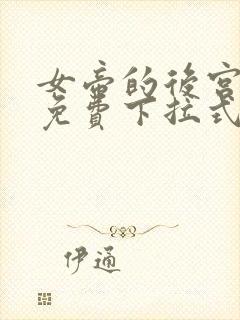 女帝的後宮
免費下拉式
伊通